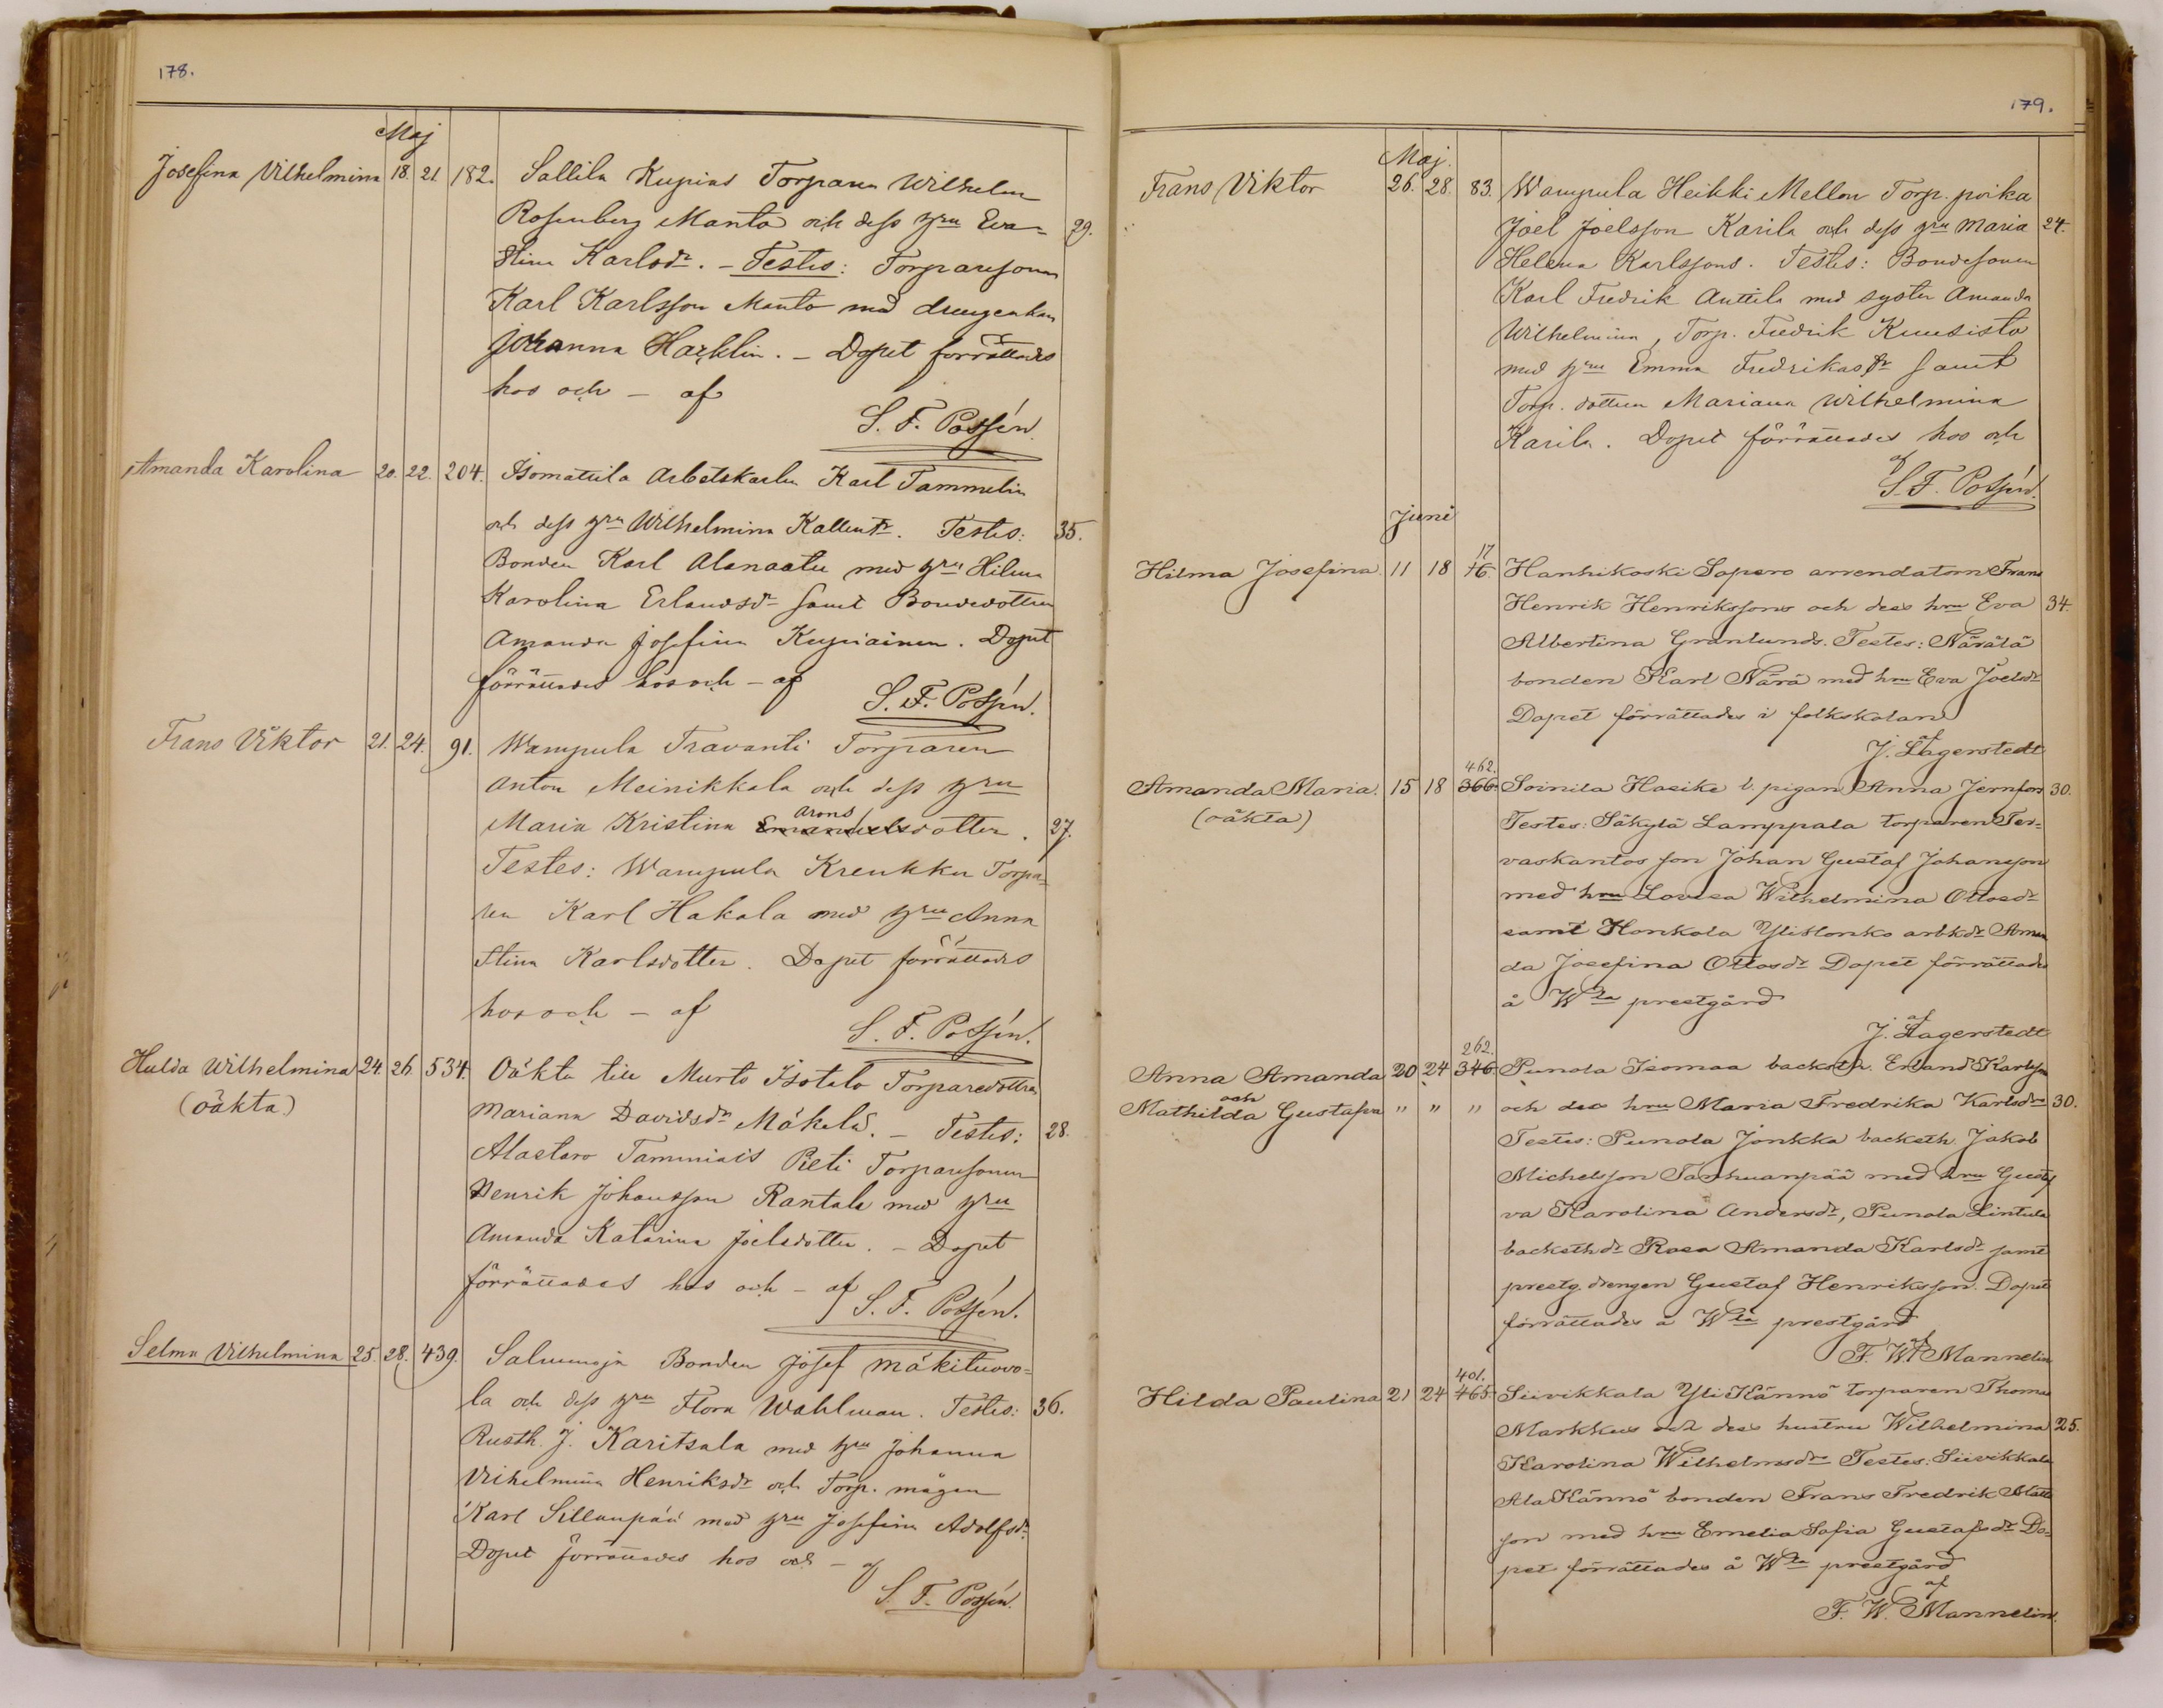 178.
Maj
Josefina Vilhelmina 18. 21. 182. Sallila Kupias Torparen Wilhelm
Rosenberg Manto och dess hru Eva- 29.
stina Karlsdr. - Testes: Torparesonen
Karl Karlsson Manto med drengenhan
Johanna Harklin. - Dopet förrättades
hos och - af
S. F. Possén.
Amanda Karolina 20. 22. 204. Isomattila Arbetskarlen Karl Tammelin
och dess hru Wilhelmina Kallentr. Testes: 35.
Bonden Karl Alanaatu med hru Hilma
Karolina Erlandsdr samt Bondedottren
Amanda Josefina Kupiainen. Dopet
förrättades hos och - af
S. F. Possén.
Frans Viktor 21. 24. 91. Wampula Travanti Torparen
Anton Meinikkala och dess hru
Arons
Maria Kristina Emanuelsdotter. 27.
Testes: Wampula Krenkku Torpa-
ren Karl Hakala med hru Anna
Stina Karlsdotter. Dopet förrättades
hos och - af
S. F. Possén.
Hulda Wilhelmina 24. 26. 534. Oäkta till Murto Isotalo Torparedottren
(oäkta)
Mariana Davidsdr Mäkelä. - Testes: 28.
Alastaro Tammiais Pieti Torparesonen
Henrik Johansson Rantala med hru
Amanda Katarina Joelsdotter. - Dopet
förrättades hos och - af
S. F. Possén.
Selma Vilhelmina 25. 28. 439. Salmenoja Bonden Josef Mäkituovo-
la och dess hru Flora Wahlman. Testes: 36.
Rusth. J. Karitsala med hru Johanna
Vilhelmina Henriksdr och Torp. mågen
Karl Sillanpää med hru Josefina Adolfsdr.
Dopet förrättades hos och - af
S. F. Possén.
179.
Maj.
Frans Viktor 26. 28. 83. Wampula Heikki Mellon Torp. poika
Joel Joelsson Karila och dess hru Maria 24.
Helena Karlssons. Testes: Bondesonen
Karl Fredrik Anttila med syster Amanda
Wilhelmina, Torp. Fredrik Kuusisto
med hru Emma Fredrikasdr samt
Torp. dottren Mariana Wilhelmina
Karila. Dopet förrättades hos och
af
S. F. Possén.
Juni
17
Hilma Josefina. 11 18 76. Hanhikoski Sapero arrendatorn Frans
Henrik Henrikssons och dess hru Eva 34.
Albertina Granlunds. Testes: Närälä
bonden Karl Närä med hru Eva Joelsdr
Dopet förrättades i folkskolan
af
J. Lagerstedt
462.
Amanda Maria. 15 18 366. Soinila Hasike b. pigan Anna Jernfors 30.
(oäkta)
Testes: Säkylä Lamppala torparen Ter-
vaskantos son Johan Gustaf Johansson
med hru Lovisa Wilhelmina Ottosdr
samt Honkola Ylihonko arbkdr Aman
da Josefina Ottosdr Dopet förrättades
å Wla prestgård
af
J. Lagerstedt
262.
Anna Amanda 20 24 346 Punola Isomaa backsth. Erland Karlsson
och
Mathilda Gustafva " " " och dess hru Maria Fredrika Karlsdr 30.
Testes: Punola Jonkka backsth. Jakob
Michelsson Tanhuanpää med hru Gustaf
va Karolina Andersdr, Punola Lintula
backsth dr Rosa Amanda Karlsdr samt
prestg. drengen Gustaf Henriksson. Dopet
förrättades å Wla prestgård
af
F. W. Mannelin
401.
Hilda Paulina 21 24 465 Siivikkala Yli Kännö torparen Thomas
Markkus och dess hustru Wilhelmina 25.
Karolina Wilhelmsdr Testes: Siivikkala
Ala Kännö bonden Frans Fredrik Matts
son med hru Emelia Sofia Gustafsdr Do-
pet förrättades å Wla prestgård
af
F. W. Mannelin.